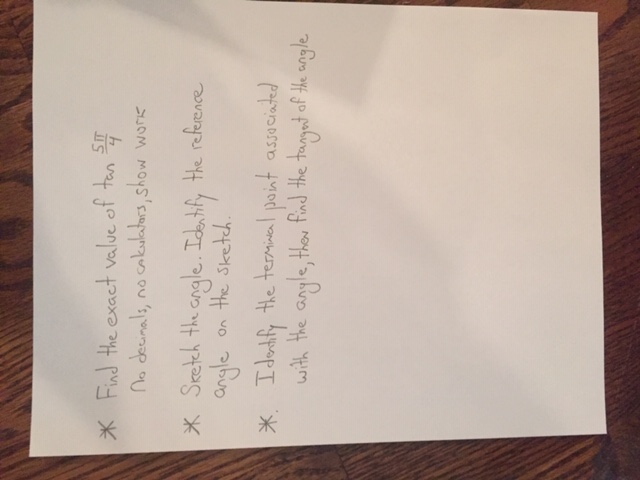 * Find the exact value of tan 5π/4
No decimals, no calculators, show work
* Sketch the angle. Identify the reference
angle on the sketch.
*. Identify the terminal point associated
with the angle, then find the tangent of the angle